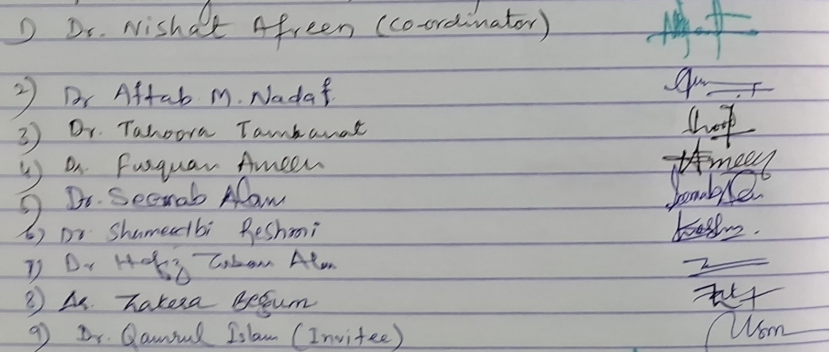 1) Dr. Nishat Afreen (co-ordinator)
2) Dr Aftab M. Nadaf.
3) Dr. Tahoora Tambanat
4) Dr. Furquan Ameen Ameen
5) Dr. Seemab Alam
6) Dr Shameembi Reshmi
7) Dr Hafiz Alam
8) Dr. Zakera Begum
9) Dr. Qamrul Islam (Invitee)